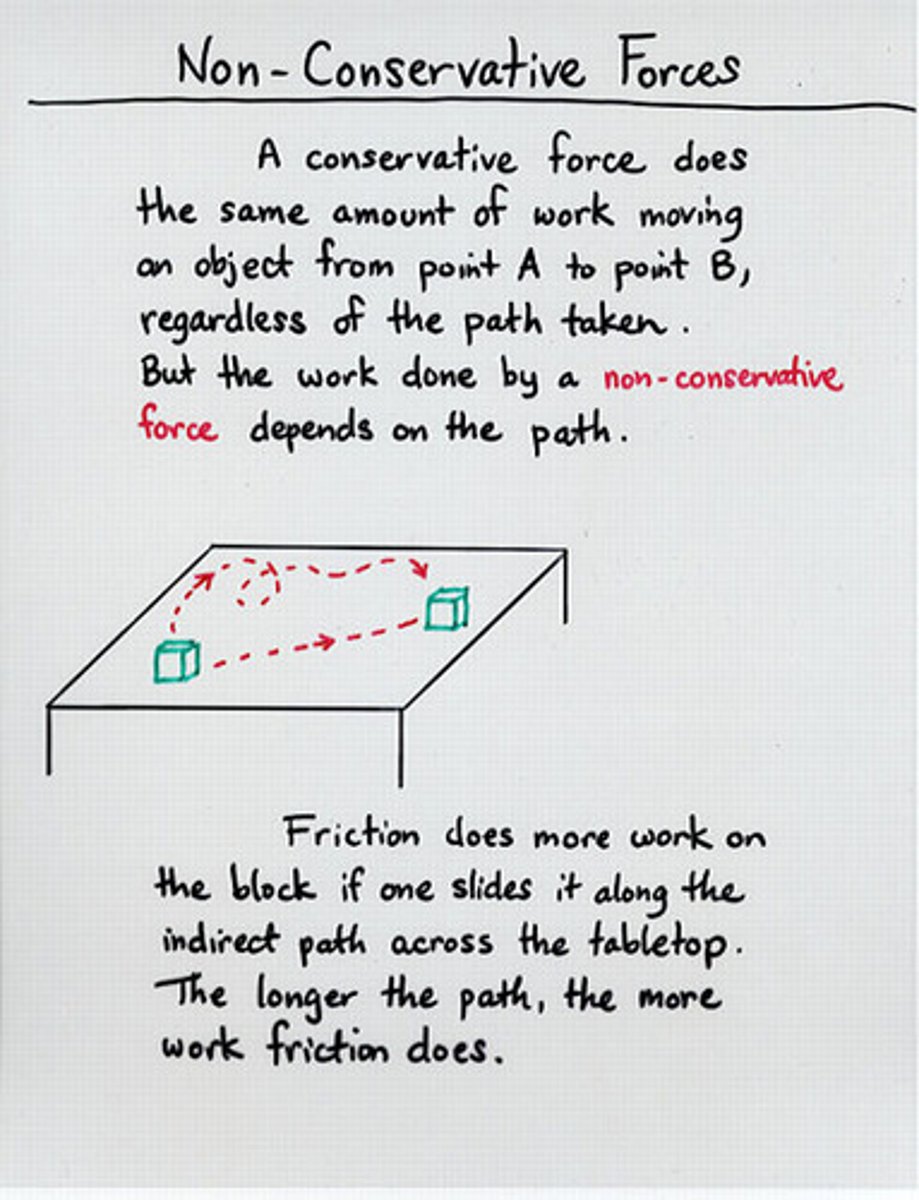 Non-Conservative Forces
A conservative force does
the same amount of work moving
an object from point A to point B,
regardless of the path taken.
But the work done by a non-conservative
force depends on the path.
Friction does more work on
the block if one slides it along the
indirect path across the tabletop.
The longer the path, the more
work friction does.